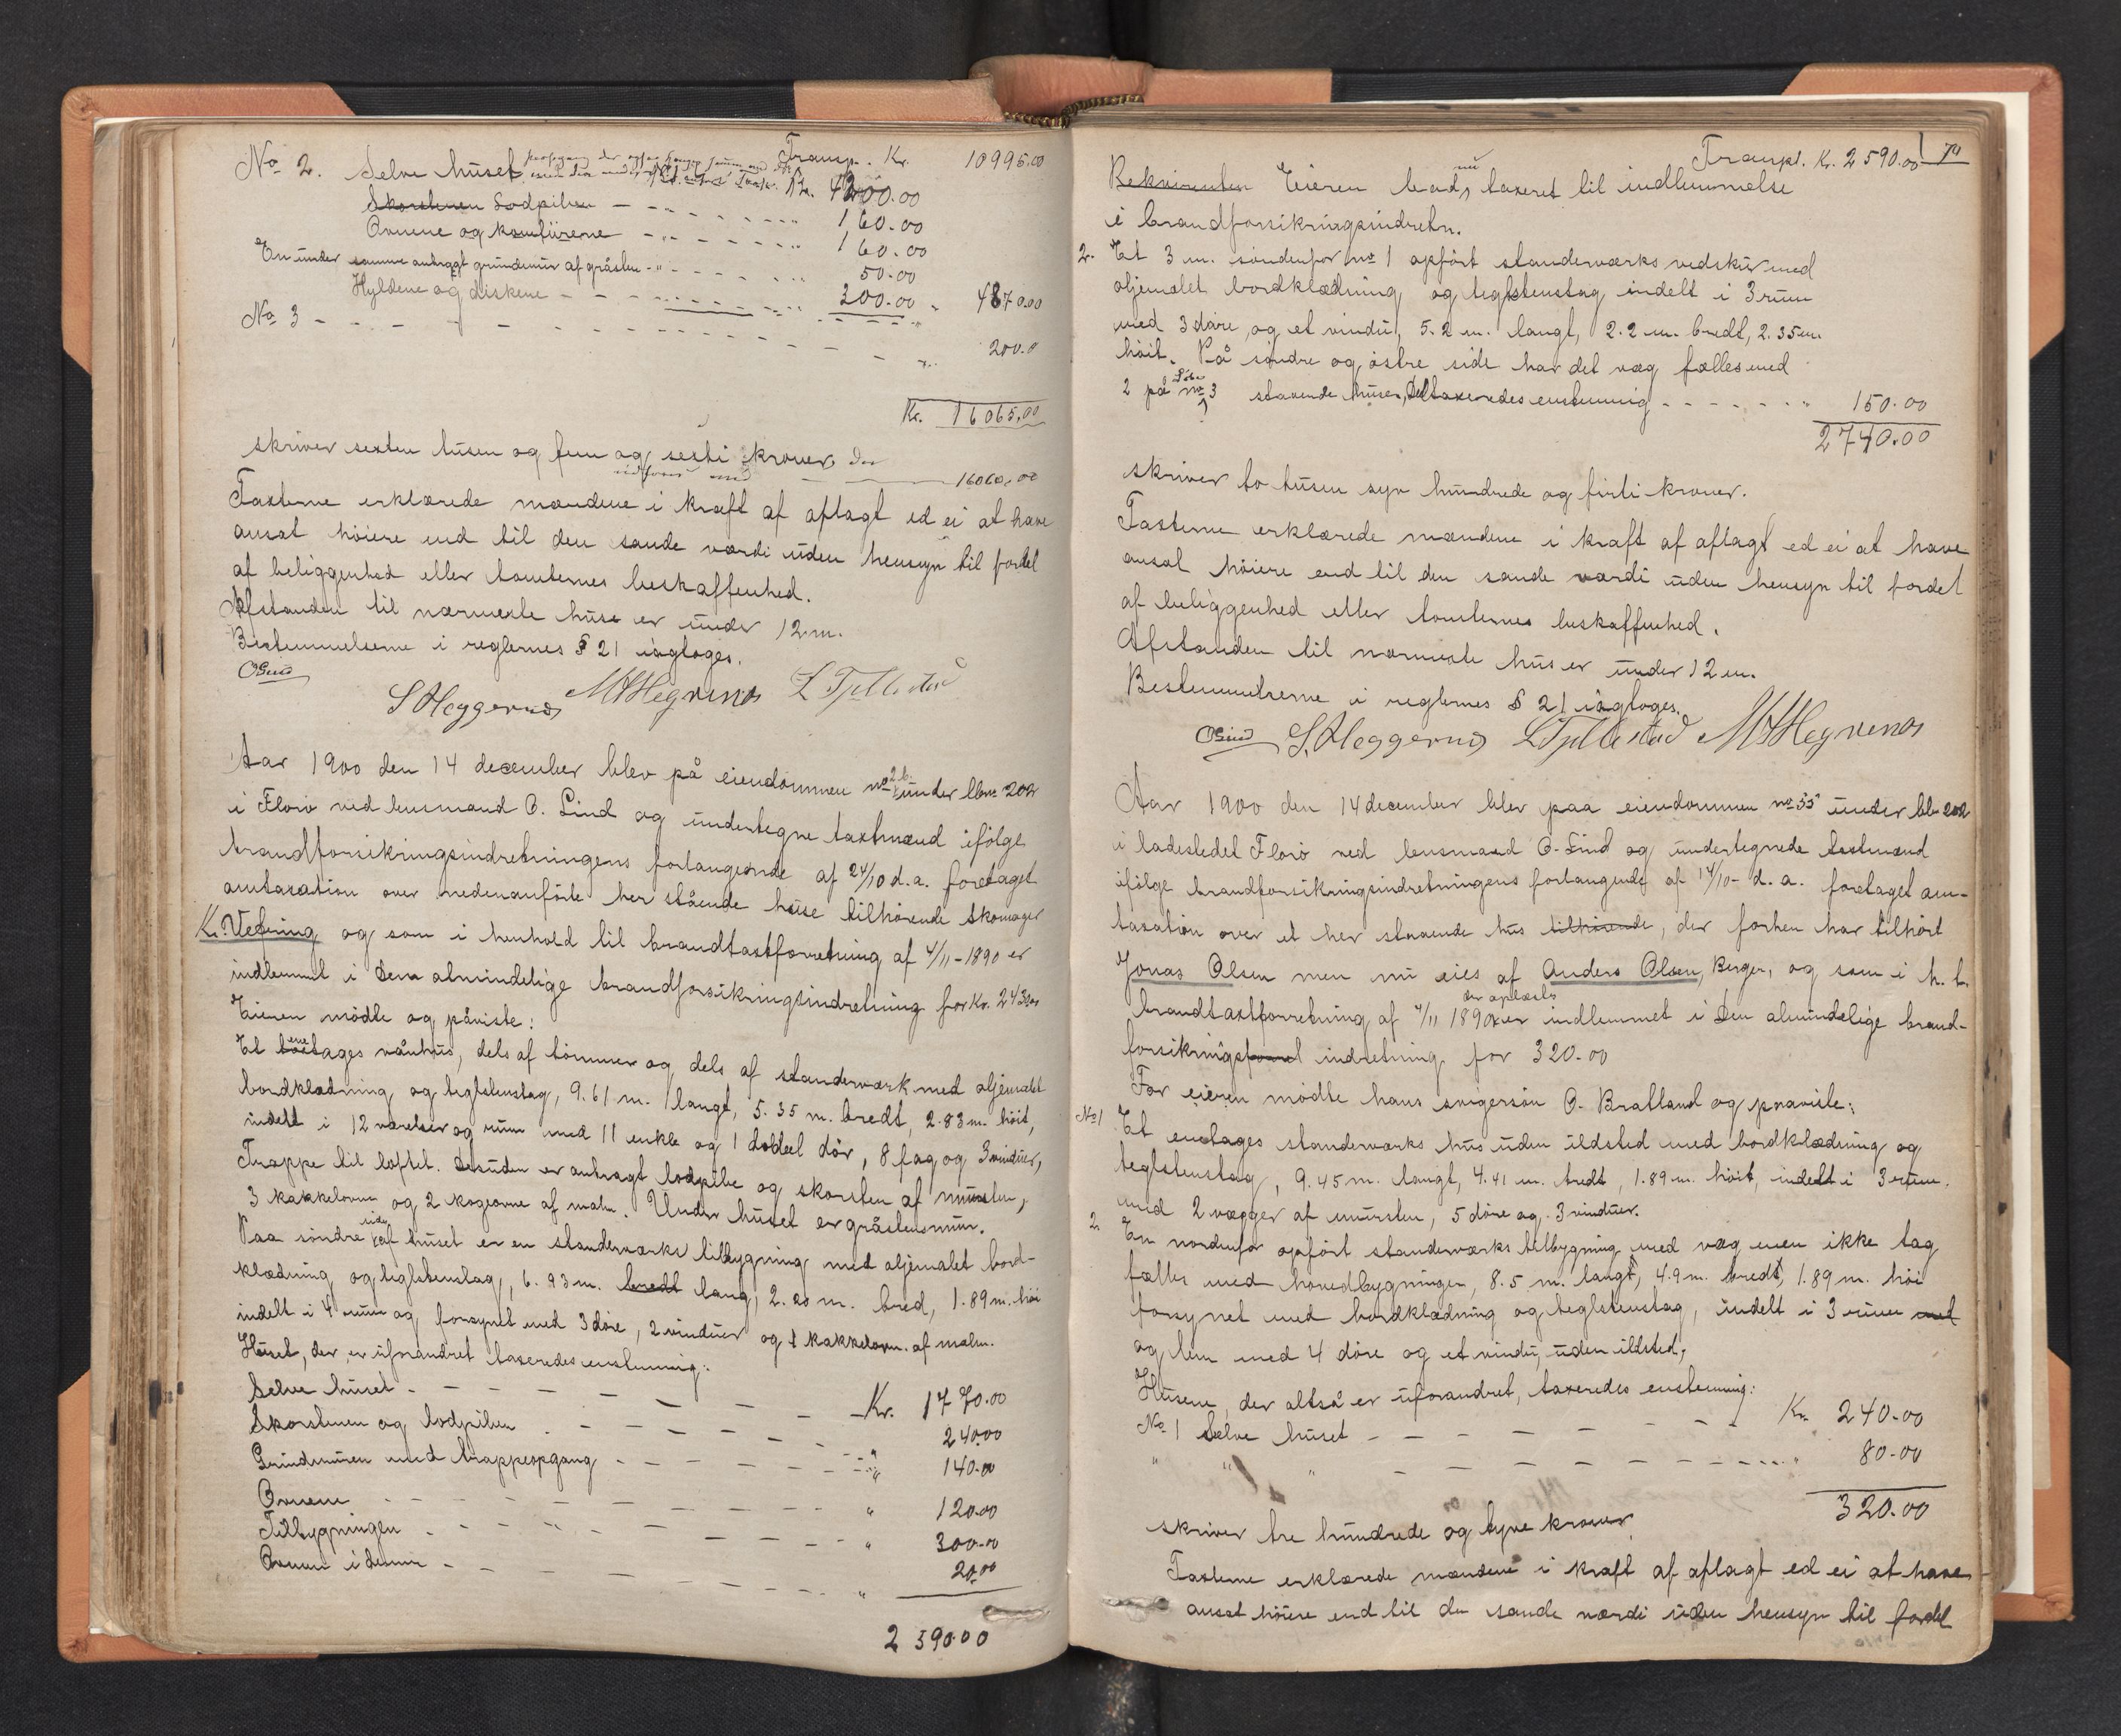 Transp. Kr. 10995.00
No 2. Selve huset Kr. 4200.00
Skorstenen Lodpiben - 160.00
Ovnene og komfürene - 160.00
En under samme anbragt grundmür af gråsten - 50.00
Hyldene og diskene - 300.00 4870.00
No 3 - 200.0
Kr. 16065,00
skriver sexten tusen og fem og sexti kroner, der
udføres med 16060,00
Taxterne erklærede mændene i kraft af aflagt ed ei at have
ansat höiere end til den sande værdi uden hensyn til fordel
af beliggenhed eller tomternes beskaffenhed.
Afstanden til nærmeste huse er under 12 m.
Bestemmelserne i reglernes § 21 iagtoges.
OLind S Heggernes M H Hegrenes L Tyllestad
Aar 1900 den 14 december blev på eiendommen no 2 b. under lbno 202
i Florö ved lensmand O. Lind og undertegne taxtmænd ifölge
brandforsikringsindretningens forlangende af 24/10 d.a. foretaget
omtaxation over nedenanförte her stående huse tilhörende skomager
K. Vefring og som i henhold til brandtaxtforretning af 4/11-1890 er
indlemmet i Den almindelige brandforsikringsindretning for Kr. 2430.00
Eieren mödte og påviste:
Et enetages vånhus, dels af tömmer og dels af standerværk med oljemalet
bordklædning og teglstenstag, 9.61 m. langt, 5.35 m. bredt, 2.83 m. höit,
indelt i 12 værelser og rum med 11 enkle og 1 dobbel dör, 8 fag og 3 vinduer,
Trappe til loftet. Desuden er anbragt lodpibe og skorsten af mursten,
3 kakkelovne og 2 kogeovne af malm. Under huset er gråstensmur.
Paa söndre side af huset er en standerværks tilbygning med oljemalet bord-
klædning og teglstenstag, 6.93 m. bredt lang, 2.20 m. bred, 1.89 m. höi
indelt i 4 rum og forsynet med 3 döre, 2 vinduer og 1 kakkelovn af malm.
Huset, der er uforandret taxeredes enstemmig:
Selve huset - Kr. 1770.00
Skorstenen og lodpiben - 240.00
Grundmuren med trappeopgang - 140.00
Ovnene - 120.00
Tilbygningen - 300.00
Ovnen i denne - 20.00
2590.00
Transpt. Kr. 2590.00 70
Rekvirenten Eieren bad nu taxeret til indlemmelse
i brandforsikringsindretn.
2. Et 3 m. söndenfor no 1 opfört standerværks vedskur med
oljemalet bordklædning og teglstenstag indelt i 3 rum
med 3 döre og et vindu, 5.2 m. langt, 2.2 m. bredt, 2.35 m.
höit. På söndre og östre side har det væg fælles med
2 på no 3 staaende huse, Det taxeredes enstemmig - 150.00
2740.00
skriver to tusen syv hundrede og förti kroner.
Taxterne erklærede mændene i kraft af aflagt ed ei at have
ansat höiere end til den sande værdi uden hensyn til fordel
af beliggenhed eller tomternes beskaffenhed.
Afstanden til nærmeste hus er under 12 m.
Bestemmelserne i reglernes § 21 iagtoges.
OLind S. Heggernes L Tyllestad M H Hegrenes
Aar 1900 den 14 december blev paa eiendommen no 55 under lbno 202
i ladestedet Florö ved lensmand O. Lind og undertegnede taxtmænd
ifölge brandforsikringsindretningens forlangende af 14/10- d.a. foretaget om-
taxation over et her staaende hus tilhörende, der forhen har tilhört
Jonas Olsen men nu eies af Anders Olsen, Berger, og som i h. t.
brandtaxtforretning af 4/11 1890 der oplæstes er indlemmet i Den almindelige brand-
forsikrings indretning for 320.00
For eieren mödte hans svigersön O. Bratland og paaviste:
No 1 Et enetages standerværks hus uden ildsted med bordklædning og
teglstenstag, 9.45 m. langt, 4.41 m. bredt, 1.89 m. höit, indelt i 3 rum.
med 2 vægger af mursten, 5 döre og 3 vinduer.
2 En nordenfor opfört standerværks tilbygning med væg men ikke tag
fælles med hovedbygningen, 8.5 m. langt, 4.9 m. bredt, 1.89 m. höi
forsynet med bordklædning og teglstenstag, indelt i 3 rum med
og lem med 4 döre og et vindu, uden ildsted,
Husene, der altså er uforandret, taxeredes enstemmig:
No 1 Selve huset - Kr. 240.00
" " " - 80.00
320.00
skriver tre hundrede og tyve kroner.
Taxterne erklærede mændene i kraft af aflagt ed ei at have
ansat höiere end til den sande værdi uden hensyn til fordel